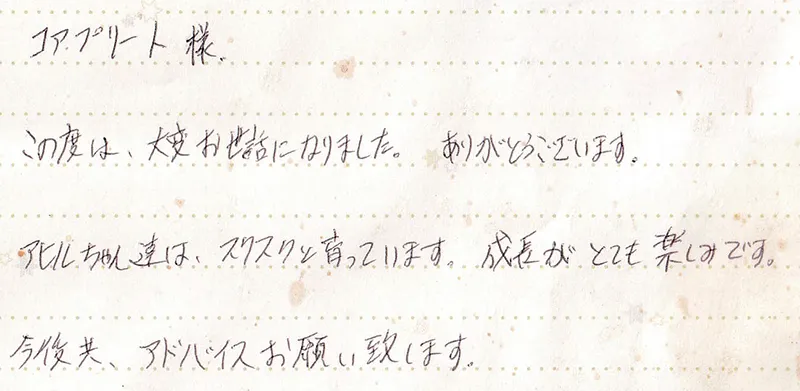 コアプリート 様.
この度は、大変お世話になりました。 ありがとうございます。
アヒルちゃん達は、スクスクと育っています。 成長が とても 楽しみです。
今後共、アドバイスお願い致します。